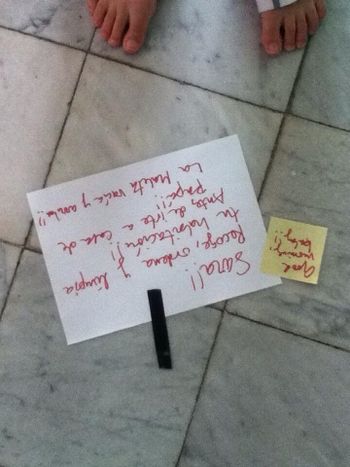 Sara!!
Recoge, ordena y limpia
tu habitación!!
Antes de irte a casa de
papá!!
La Maleta vacía y arriba!!
Good
morning!!
baby!!